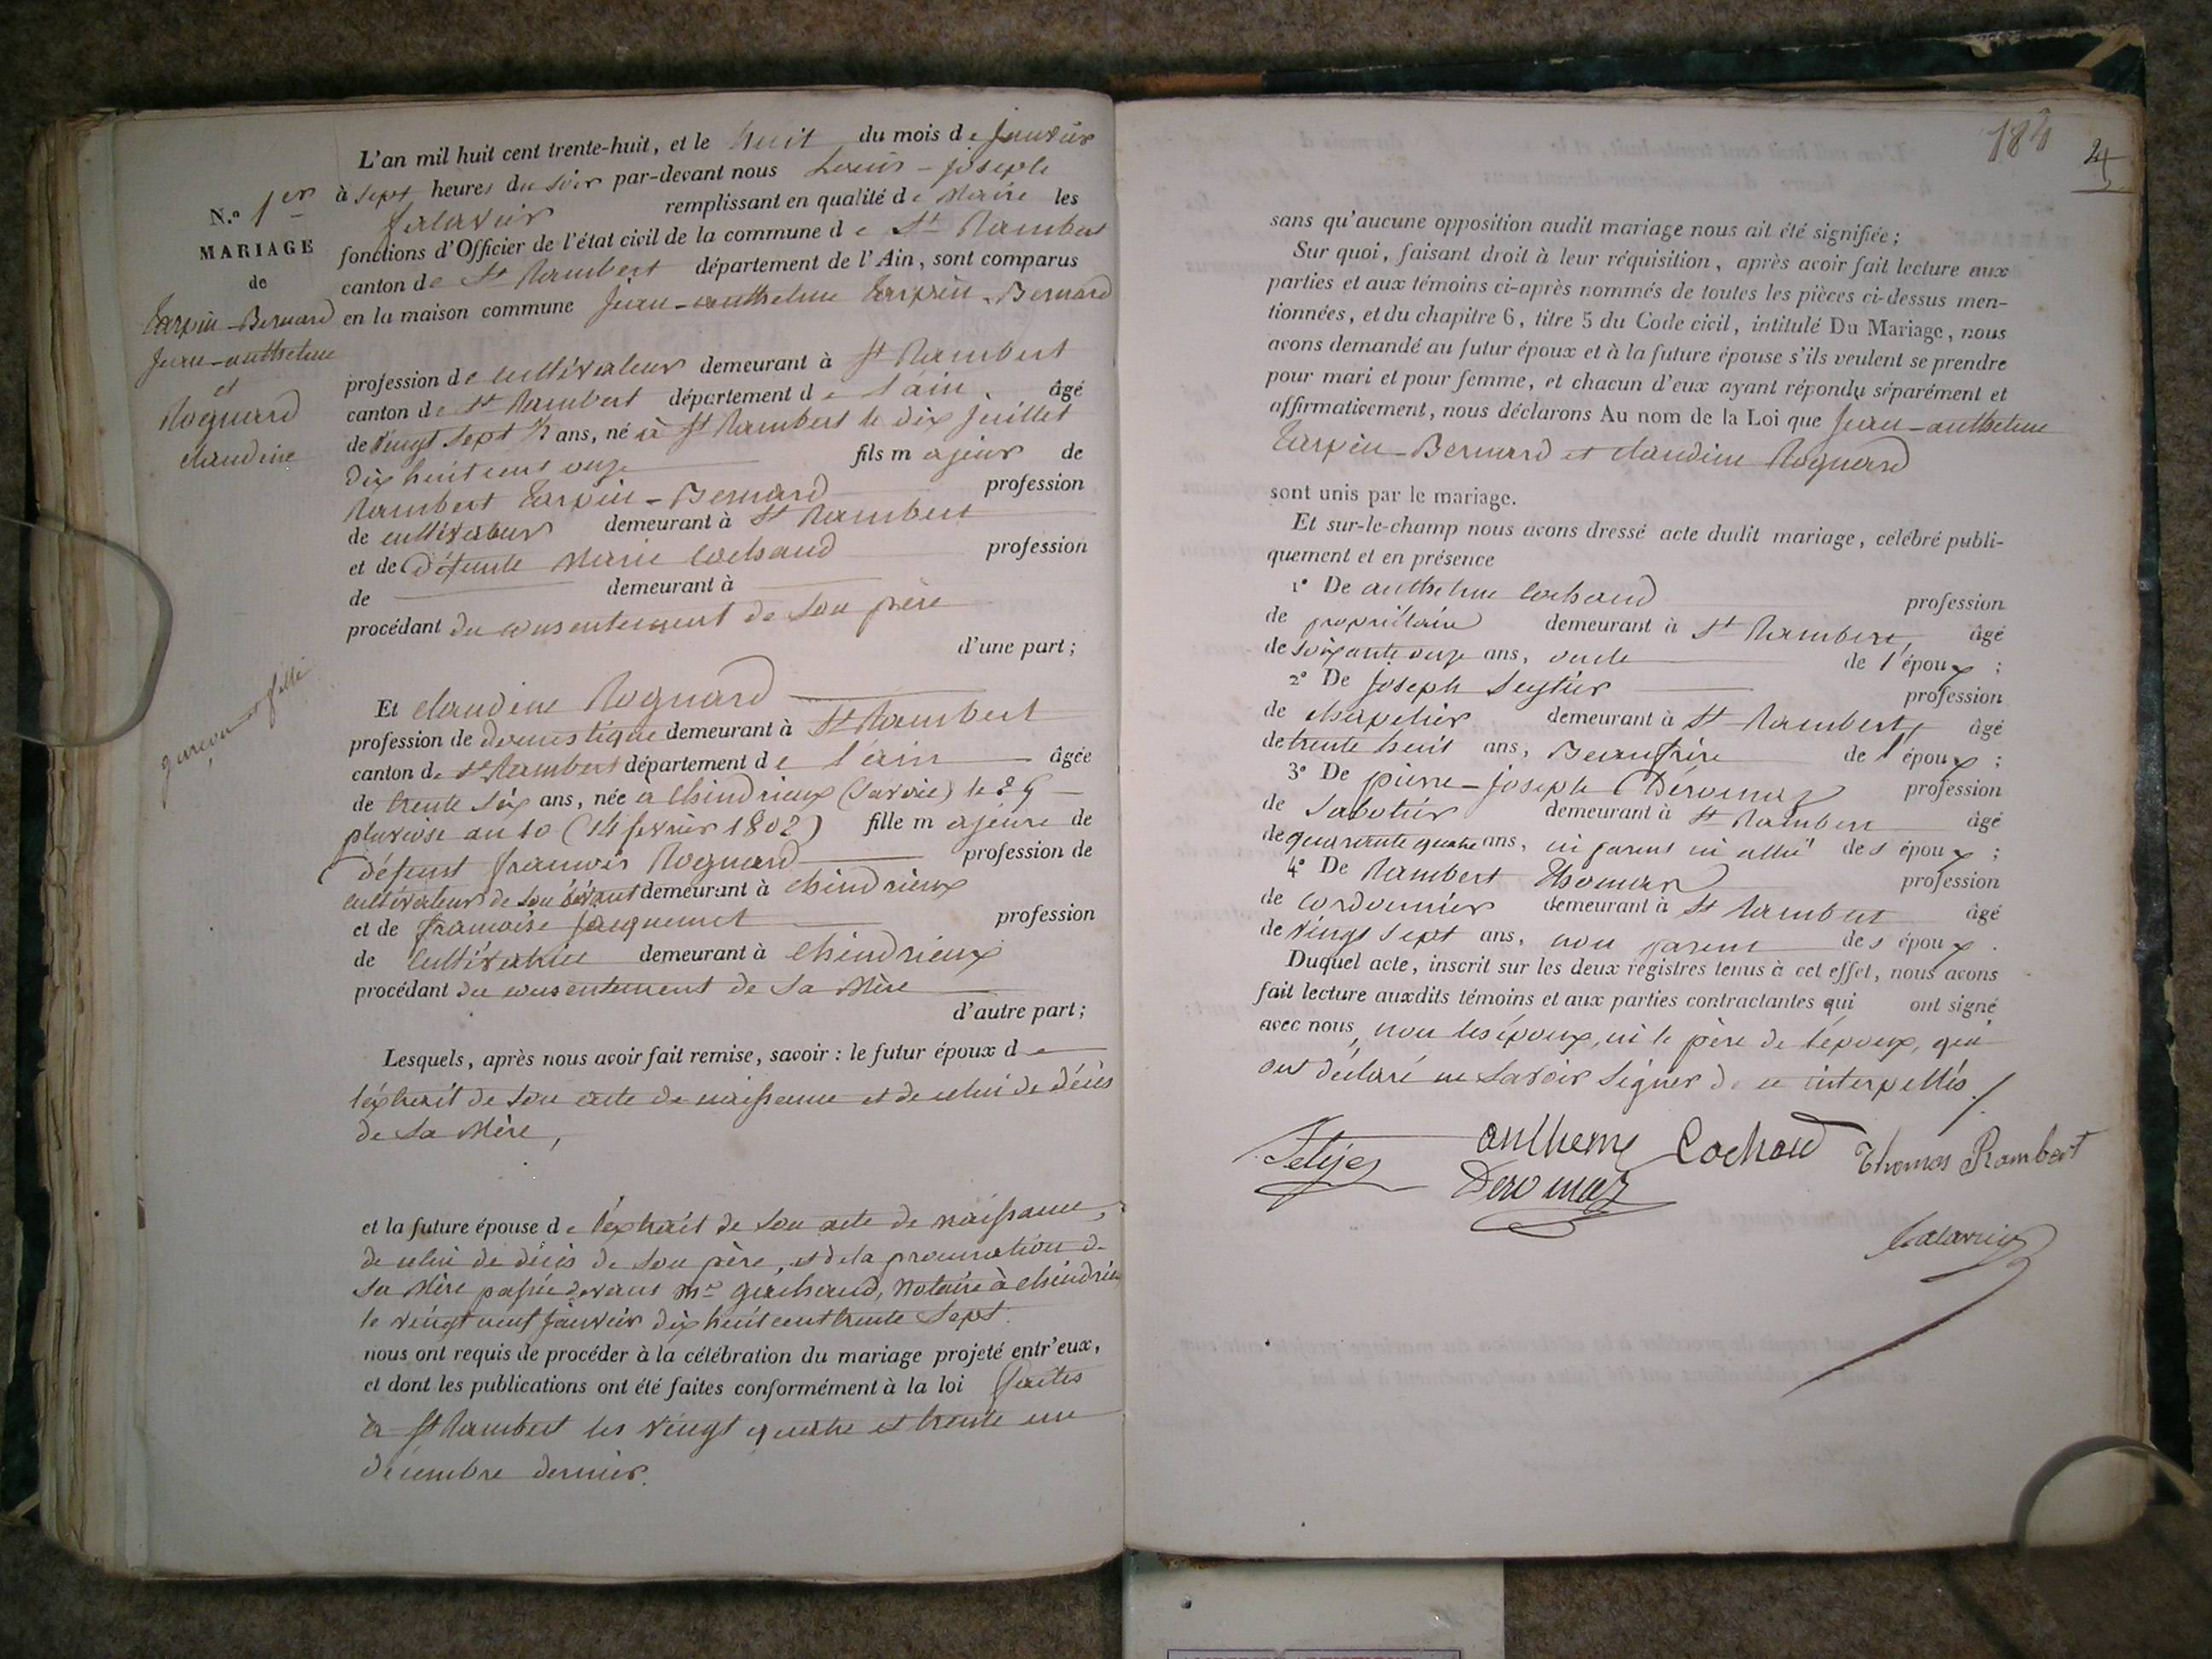 L'an mil huit cent trente-huit, et le huit du mois de janvier
à sept heures du soir par-devant nous Louis-joseph
remplissant en qualité de Maire les
fonctions d'Officier de l'état civil de la commune de St Rambert
canton de St Rambert département de l'Ain, sont comparus
en la maison commune jean-anthelme Tarpin-Bernard
N.o 1er
MARIAGE
de
Tarpin-Bernard
jean-anthelme
et
Rognard
claudine
garçon & fille
profession de cultivateur demeurant à St Rambert
canton de St Rambert département de l'ain. âgé
de vingt sept ½ ans, né à St Rambert le dix juillet
dix huit cent onze fils majeur de
Rambert Tarpin-Bernard profession
de cultivateur demeurant à St Rambert
et de défunte Marie Cochaud profession
de demeurant à
procédant du consentement de son père
d'une part;
Et claudine Rognard
profession de domestique demeurant à St Rambert
canton de St Rambert département de l'ain âgée
de trente six ans, née à chindrieux (Savoie) le 25
pluviose an 10 (14 fevrier 1802) fille majeure de
défunt françois Rognard profession de
cultivateur de son vivant demeurant à chindrieux
et de françoise jacquemet profession
de cultivatrice demeurant à chindrieux
procédant du consentement de sa Mère
d'autre part;
Lesquels, après nous avoir fait remise, savoir: le futur époux de
l'extrait de son acte de naissance et de celui de décès
de sa Mère,
et la future épouse de l'extrait de son acte de naissance,
de celui de décès de son père, et de la procuration de
sa Mère passée devant Me Guichaud, Notaire à chindrieux
le vingt neuf janvier dix huit cent trente sept.
nous ont requis de procéder à la célébration du mariage projeté entr'eux,
et dont les publications ont été faites conformément à la loi faites
à St Rambert les vingt quatre et trente un
décembre dernier.
24
sans qu'aucune opposition audit mariage nous ait été signifiée;
Sur quoi, faisant droit à leur réquisition, après avoir fait lecture aux
parties et aux témoins ci-après nommés de toutes les pièces ci-dessus men-
tionnées, et du chapitre 6, titre 5 du Code civil, intitulé Du Mariage, nous
avons demandé au futur époux et à la future épouse s'ils veulent se prendre
pour mari et pour femme, et chacun d'eux ayant répondu séparément et
affirmativement, nous déclarons Au nom de la Loi que jean-anthelme
Tarpin-Bernard et claudine Rognard
sont unis par le mariage.
Et sur-le-champ nous avons dressé acte dudit mariage, célébré publi-
quement et en présence
1o De anthelme Cochaud profession
de propriétaire demeurant à St Rambert, âgé
de soixante onze ans, oncle de l'époux;
2o De joseph profession
de chapelier demeurant à St Rambert, âgé
de trente huit ans, Beaufrère de l'époux;
3o De pierre-joseph Déromaz profession
de Sabotier demeurant à St Rambert âgé
de quarante quatre ans, ni parent ni allié des époux;
4o De Rambert Thomas profession
de Cordonnier demeurant à St Rambert âgé
de vingt sept ans, non parent des époux.
Duquel acte, inscrit sur les deux registres tenus à cet effet, nous avons
fait lecture auxdits témoins et aux parties contractantes qui ont signé
avec nous, non les époux, ni le père de l'époux, qui
ont déclaré ne savoir signer de ce interpellés.
antheme Cochoud Thomas Rambert
Deromaz